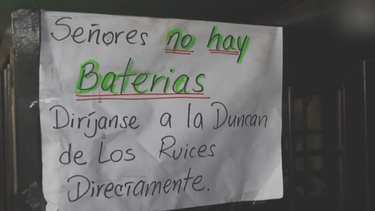 Señores no hay
Baterias
Diríjanse a la Duncan
de Los Ruices
Directamente.